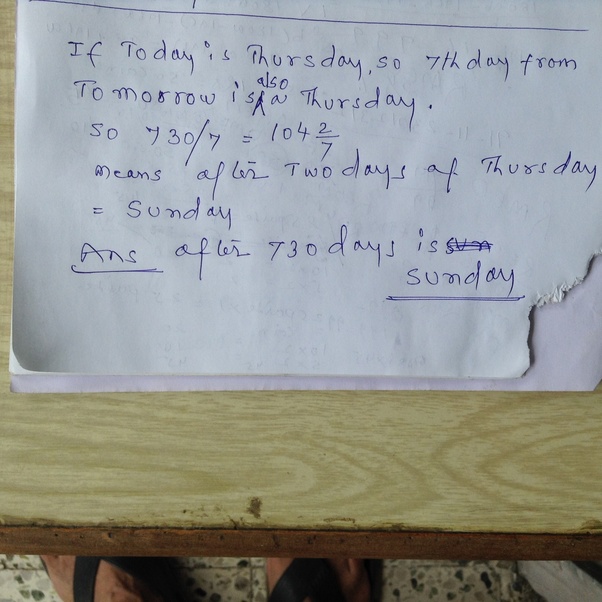 If Today is Thursday, so 7th day from
Tomorrow is also a Thursday.
So 730/7 = 104 2/7
means after Two days of Thursday
= Sunday
Ans after 730 days is
Sunday